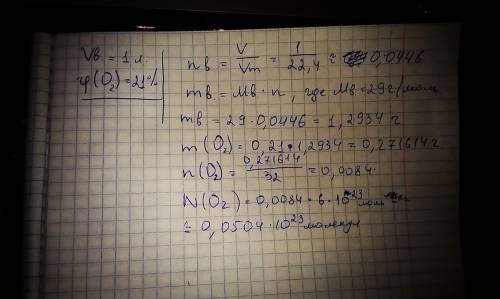 Vв = 1 л
φ(O₂) = 21%
nв = V/Vm = 1/22,4 ≈ 0,0446
mв = Mв · n, где Mв = 29 г/моль
mв = 29 · 0,0446 = 1,2934 г
m(O₂) = 0,21 · 1,2934 = 0,271614 г
n(O₂) = 0,271614/32 = 0,0084
N(O₂) = 0,0084 · 6 · 10²³
≈ 0,0504 · 10²³ молекул